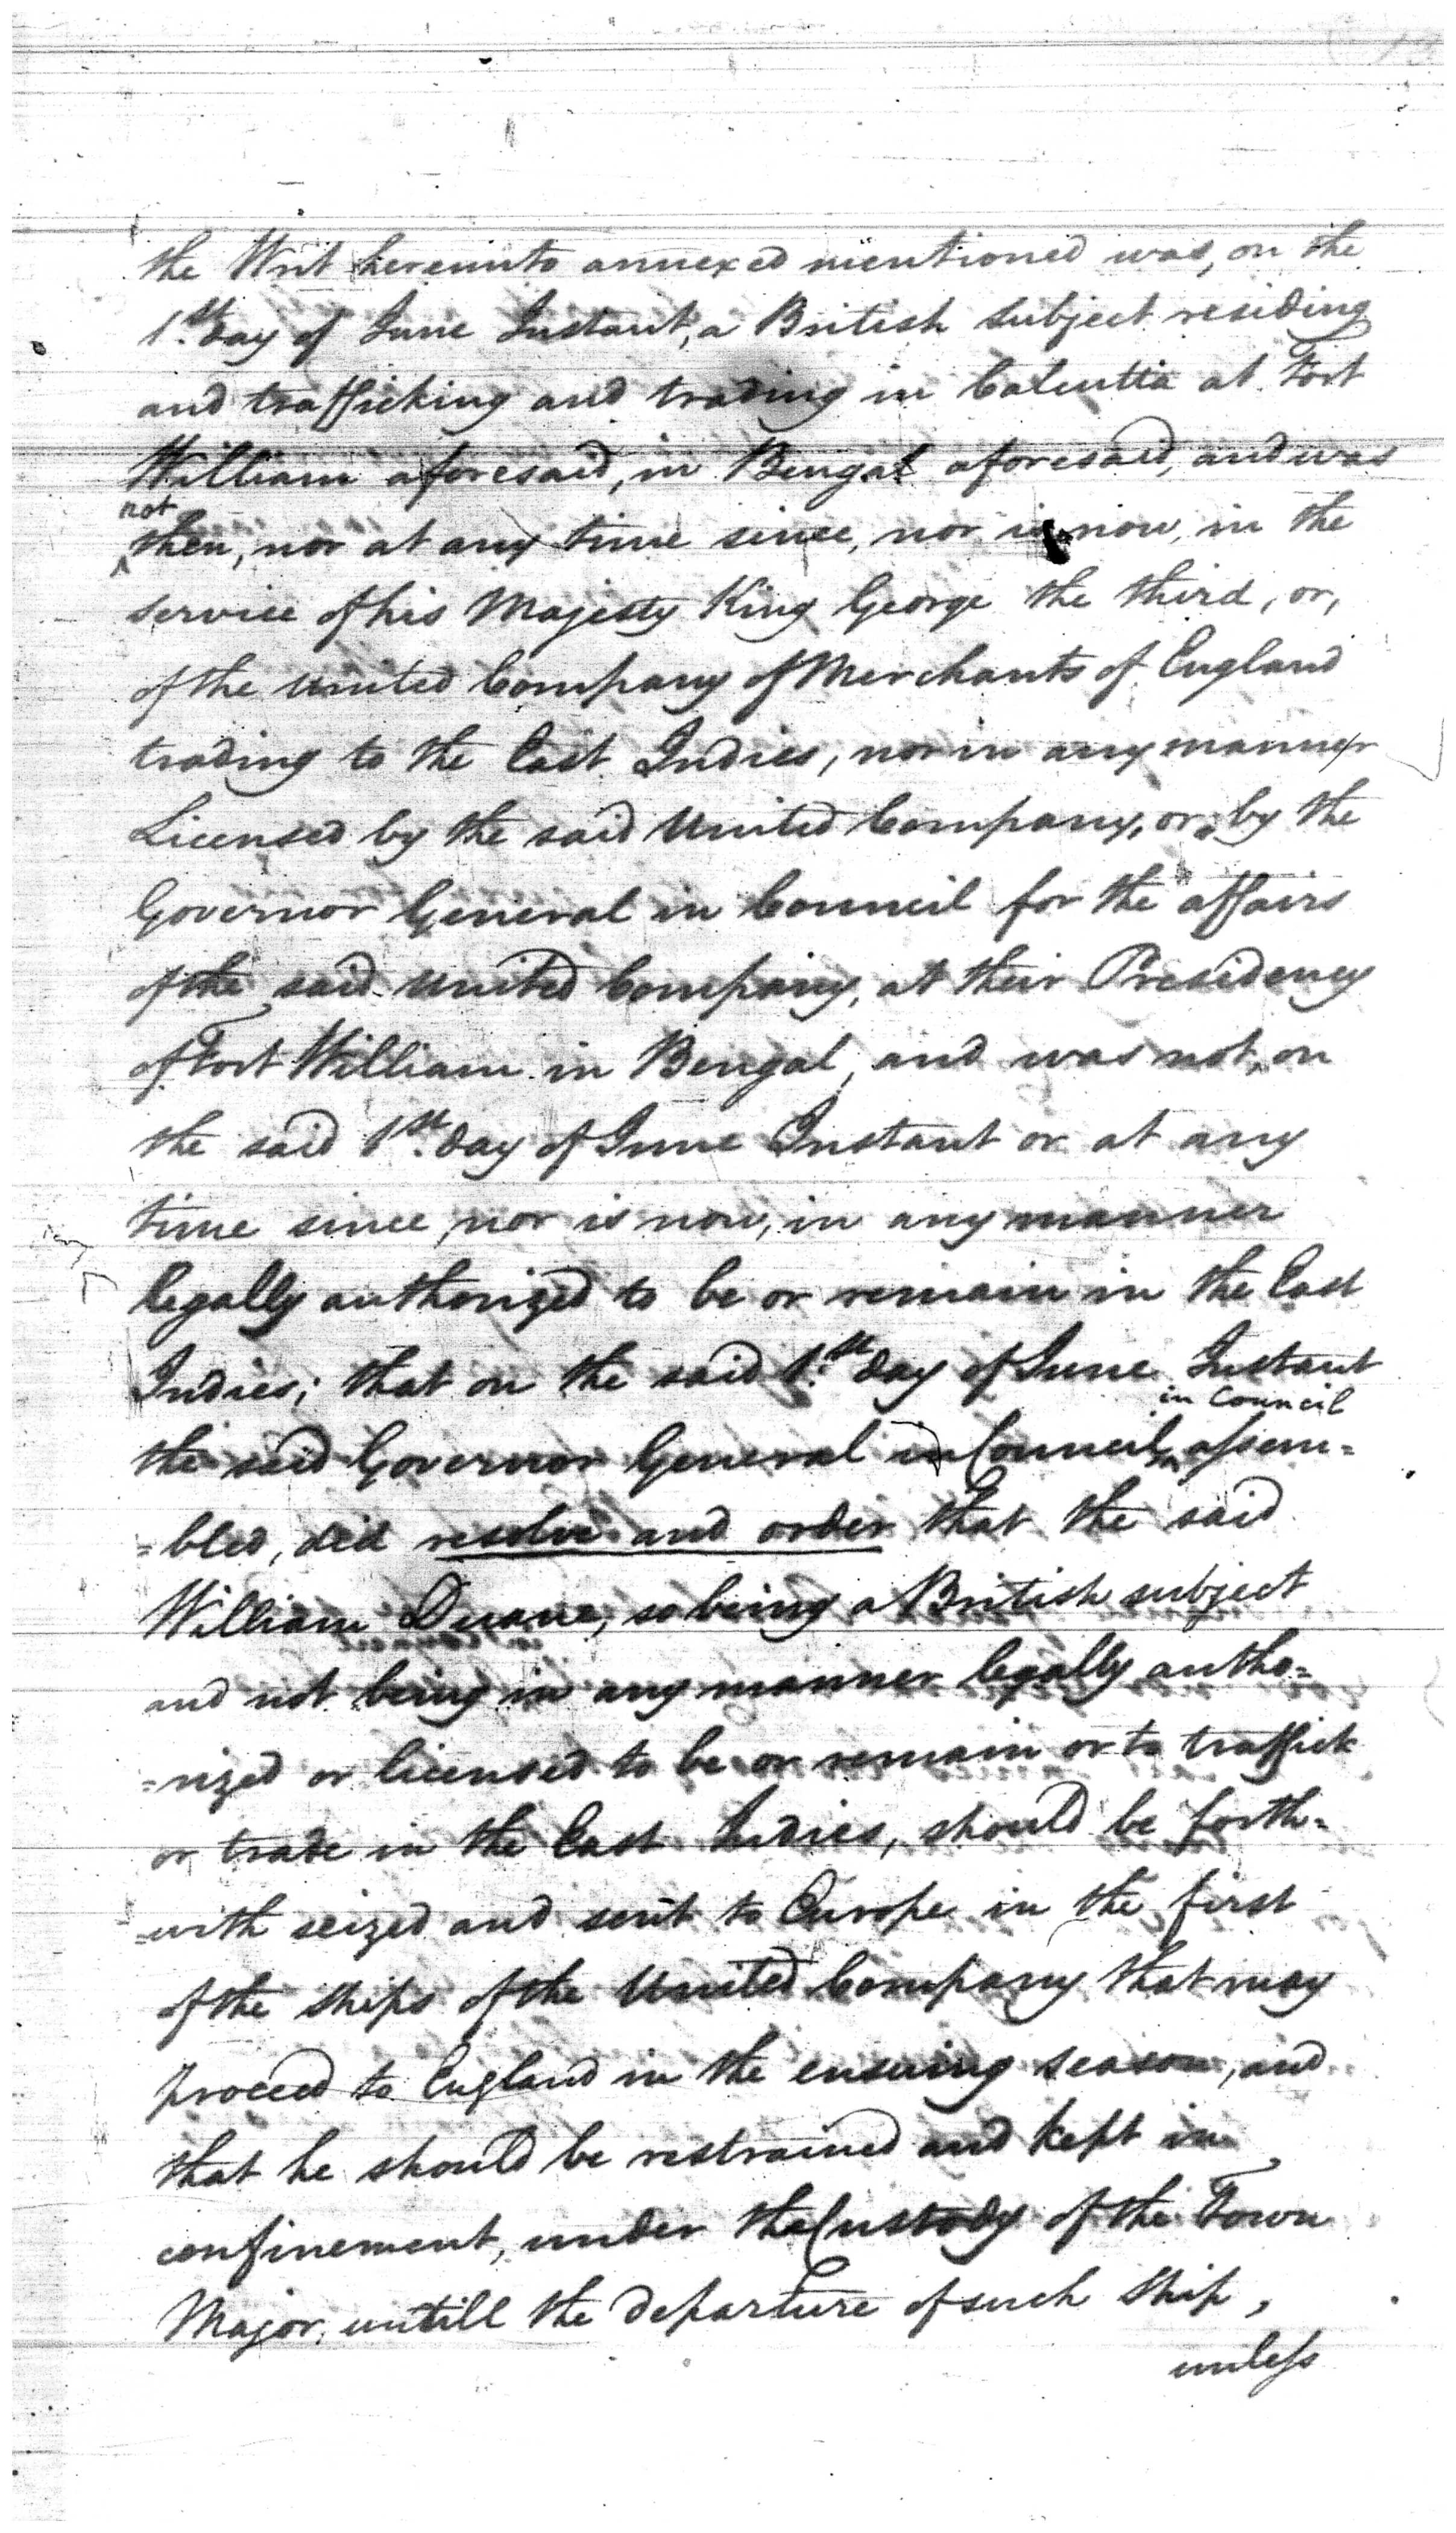 the Writ hereunto annexed mentioned was, on the
1st. day of June Instant, a British subject residing
and trafficking and trading in Calcutta at Fort
William aforesaid, in Bengal aforesaid, and was
not
then, nor at any time since, nor is now, in the
service of his Majesty King George the third, or,
of the United Company of Merchants of England
trading to the East Indies, nor in any manner
Licensed by the said United Company, or by the
Governor General in Council for the affairs
of the said United Company, at their Presidency
of Fort William in Bengal, and was not, on
the said 1st. day of June Instant or at any
time since, nor is now, in any manner
legally authorized to be or remain in the East
Indies; that on the said 1st. day of June Instant
in Council
the said Governor General in Council assem=
=bled, did resolve and order that the said
William Duane, so being a British subject
and not being in any manner legally autho=
=rized or licensed to be or remain or to traffick
or trade in the East Indies, should be forth=
=with seized and sent to Europe in the first
of the ships of the United Company that may
proceed to England in the ensuing season, and
that he should be restrained and kept in
confinement, under the Custody of the Town
Major, untill the departure of such ship,
unless